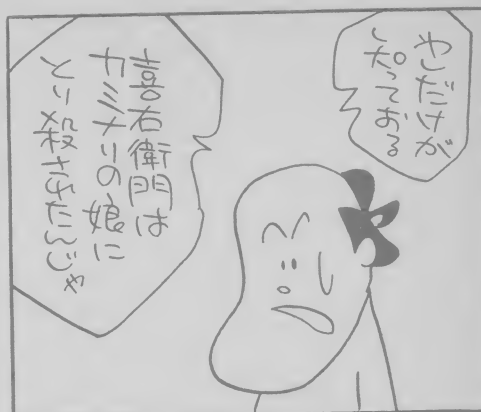 やしだけが
知っておる
喜右衛門は
カミナリの娘に
とり殺されたんじゃ